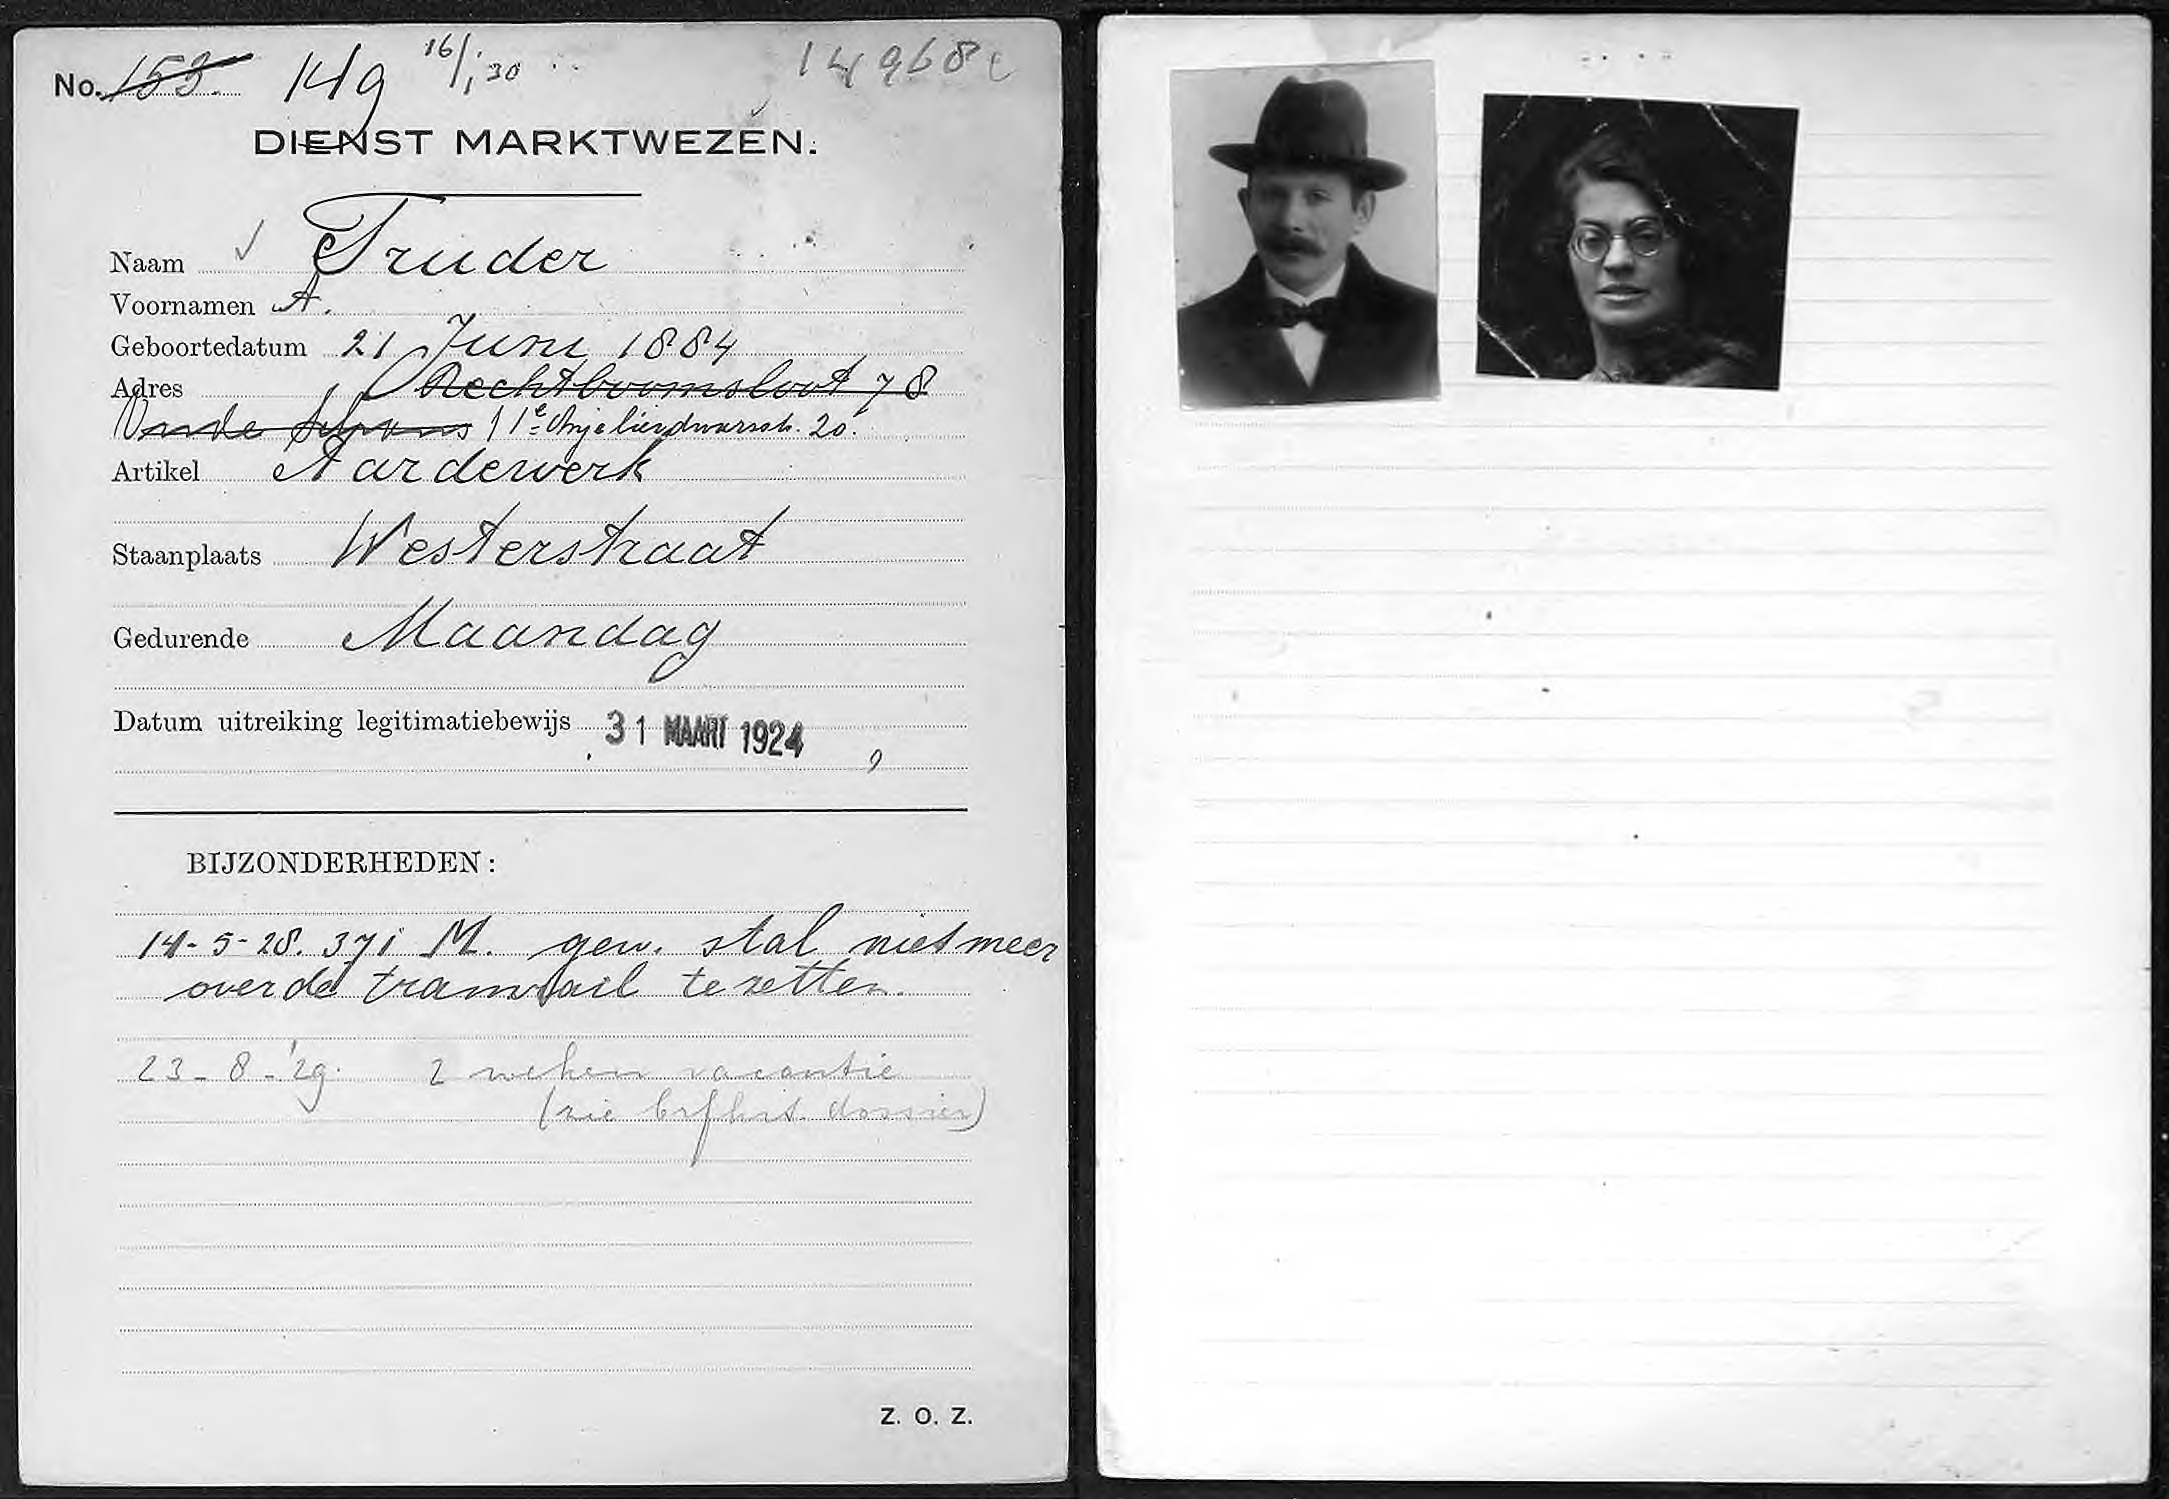 No. 153. 149 16/1 30 14968c
DIENST MARKTWEZEN.
Naam Truder
Voornamen A.
Geboortedatum 21 Juni 1884
Adres Rechtboomsloot 78
Oude Schans 11 1e Anjeliersdwarsstr. 20.
Artikel Aardewerk
Staanplaats Westerstraat
Gedurende Maandag
Datum uitreiking legitimatiebewijs 31 MAART 1924
BIJZONDERHEDEN:
14-5-28. 371 M. gew. stal niet meer
over de tramrail te zetten.
23-8-'29. 2 weken vacantie
(zie dossier)
Z. O. Z.